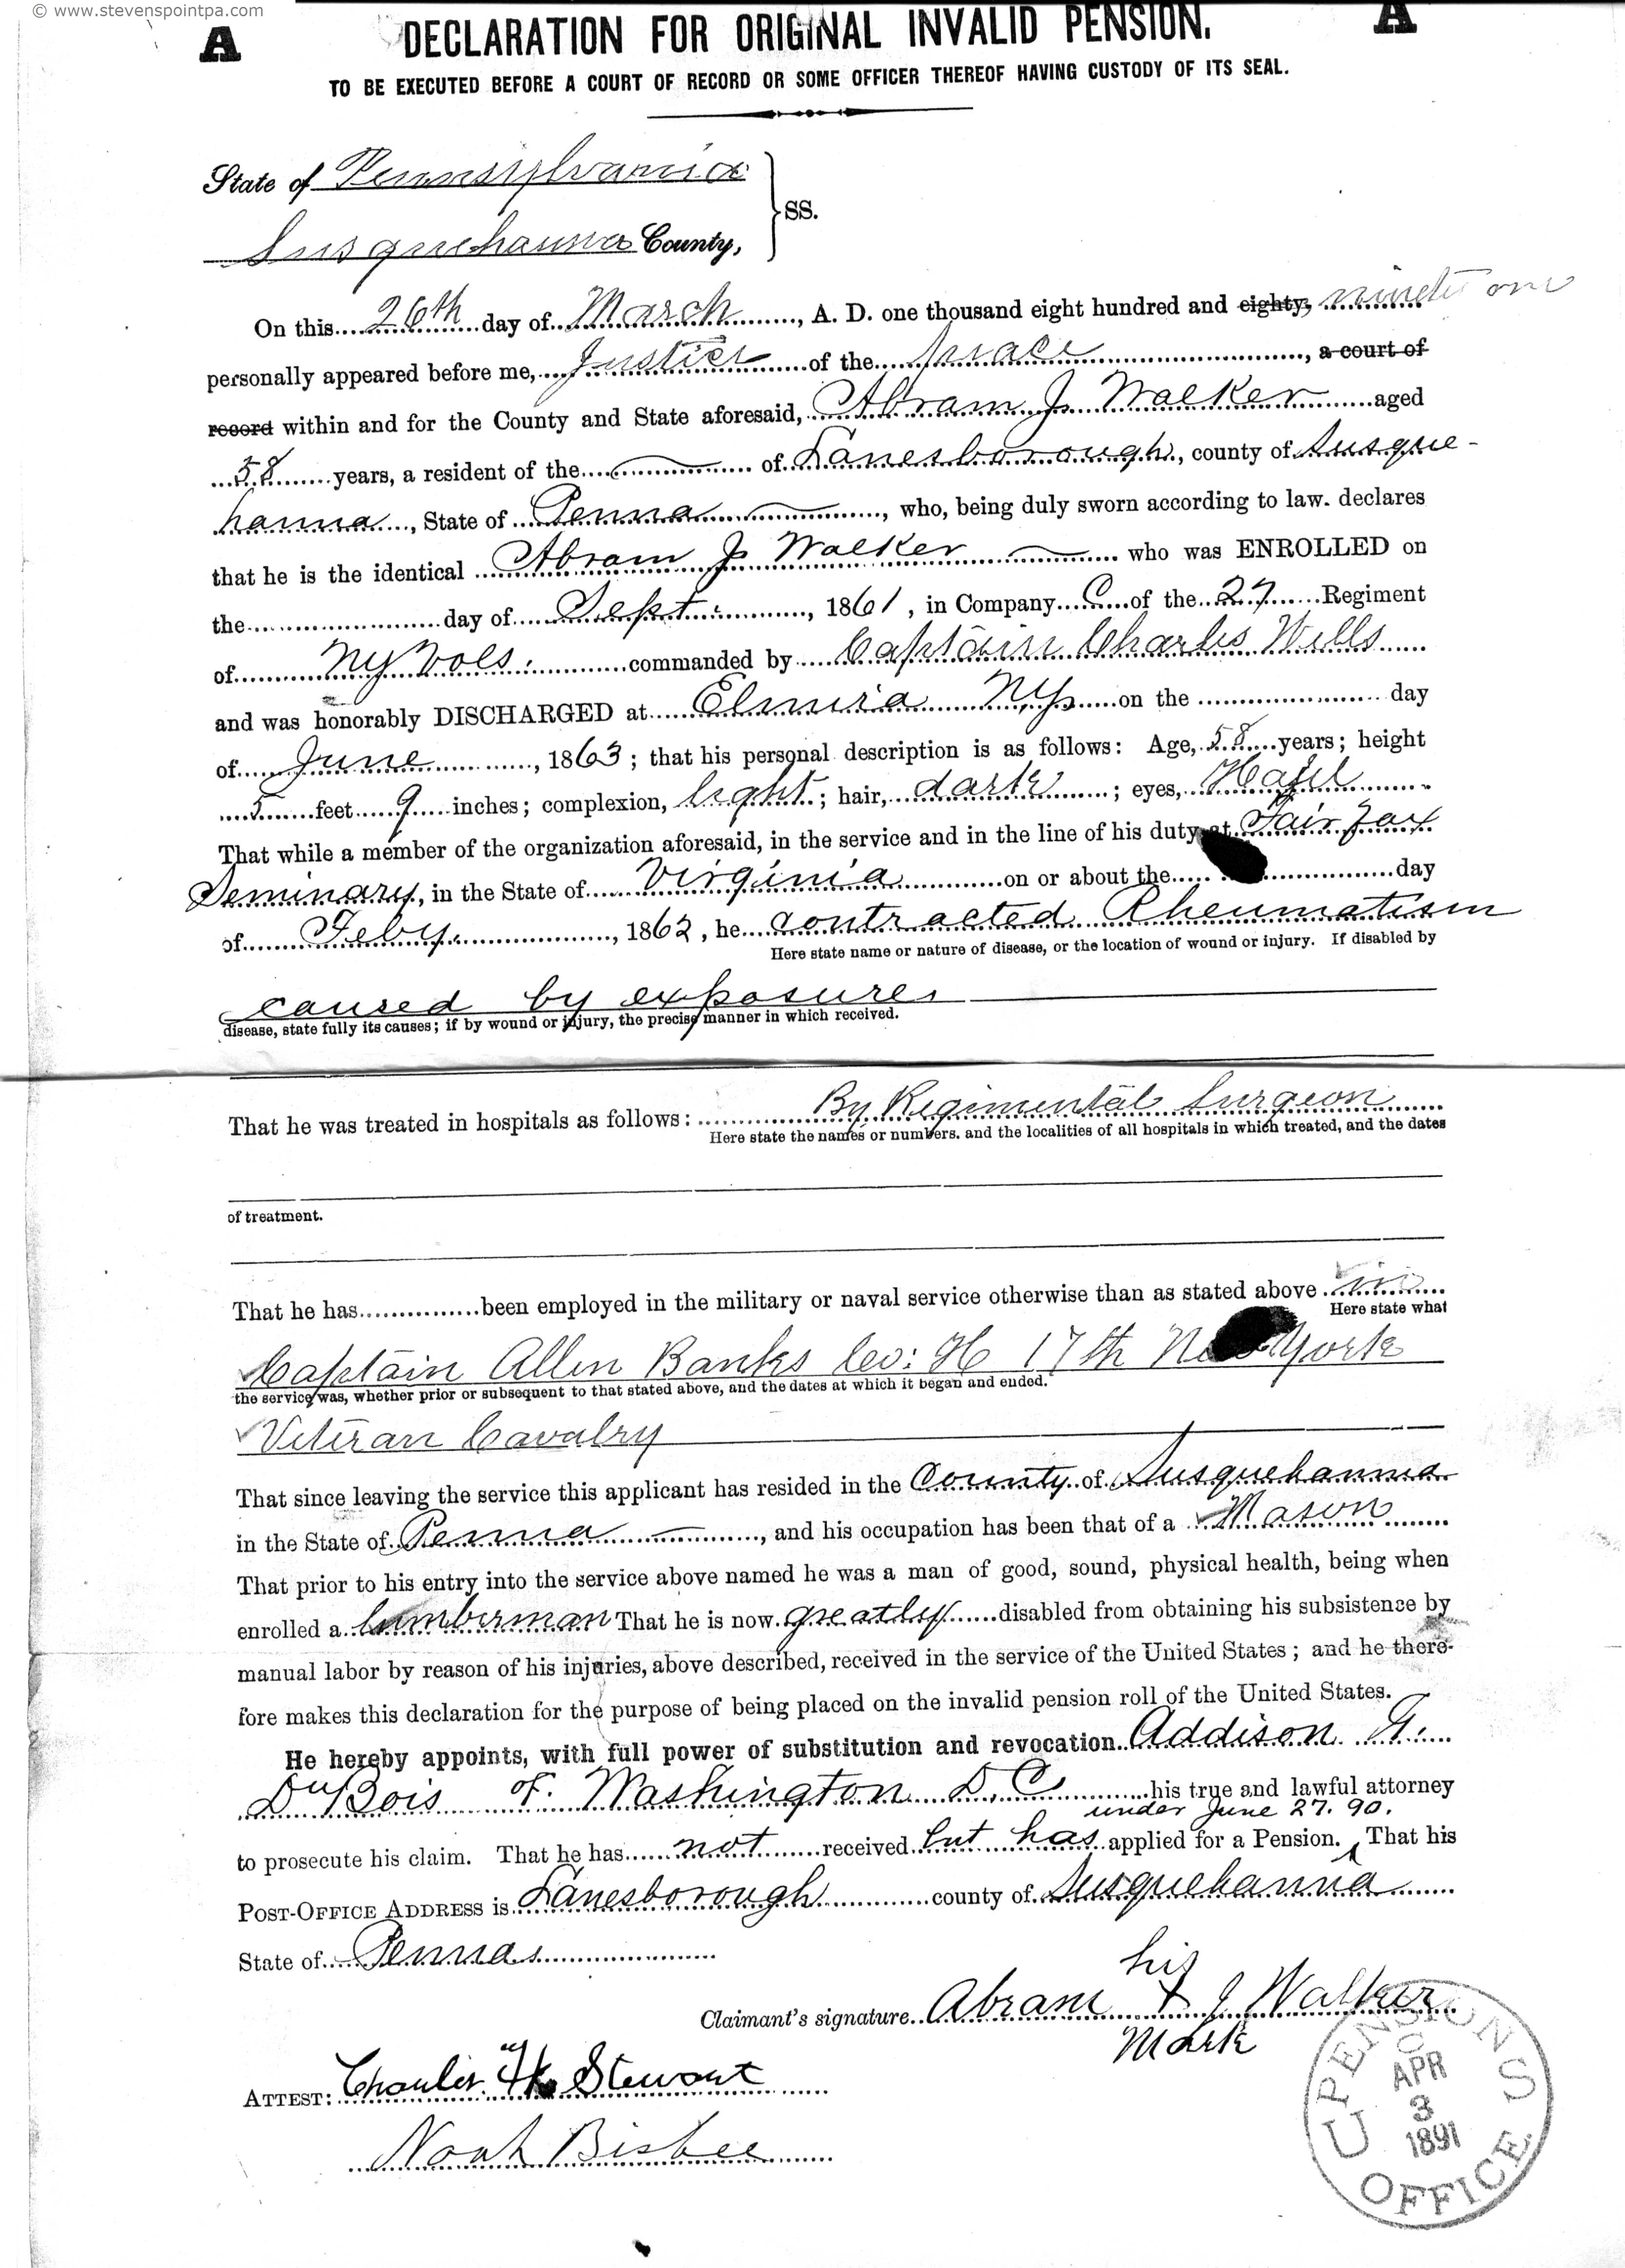 © www.stevenspointpa.com
A DECLARATION FOR ORIGINAL INVALID PENSION. A
TO BE EXECUTED BEFORE A COURT OF RECORD OR SOME OFFICER THEREOF HAVING CUSTODY OF ITS SEAL.
State of Pennsylvania
Susquehanna County, } SS.
On this 26th day of March, A. D. one thousand eight hundred and eighty, ninety one
personally appeared before me, Justice of the peace, a court of
record within and for the County and State aforesaid, Abram J. Walker aged
58 years, a resident of the of Lanesborough, county of Susque-
hanna, State of Penna, who, being duly sworn according to law. declares
that he is the identical Abram J Walker who was ENROLLED on
the day of Sept., 1861, in Company C of the 27 Regiment
of NY Vols. commanded by Captain Charles Wells
and was honorably DISCHARGED at Elmira NY on the day
of June, 1863; that his personal description is as follows: Age, 58 years; height
5 feet 9 inches; complexion, light; hair, dark; eyes, Hazel
That while a member of the organization aforesaid, in the service and in the line of his duty at Fairfax
Seminary, in the State of Virginia on or about the day
of Feby., 1862, he contracted Rheumatism
Here state name or nature of disease, or the location of wound or injury. If disabled by
caused by exposures
disease, state fully its causes; if by wound or injury, the precise manner in which received.
That he was treated in hospitals as follows: By Regimental Surgeon
Here state the names or numbers. and the localities of all hospitals in which treated, and the dates
of treatment.
That he has been employed in the military or naval service otherwise than as stated above in
Here state what
Captain Allen Banks Co: H 17th New York
the service was, whether prior or subsequent to that stated above, and the dates at which it began and ended.
Veteran Cavalry
That since leaving the service this applicant has resided in the County of Susquehanna
in the State of Penna, and his occupation has been that of a Mason
That prior to his entry into the service above named he was a man of good, sound, physical health, being when
enrolled a lumberman That he is now greatly disabled from obtaining his subsistence by
manual labor by reason of his injuries, above described, received in the service of the United States; and he there-
fore makes this declaration for the purpose of being placed on the invalid pension roll of the United States.
He hereby appoints, with full power of substitution and revocation Addison G.
DuBois of Washington D.C. his true and lawful attorney
under June 27. 90.
to prosecute his claim. That he has not received but has applied for a Pension. ^ That his
POST-OFFICE ADDRESS is Lanesborough county of Susquehanna
State of Penna
his
Claimant's signature Abram X J Walker
Mark
ATTEST: Charles H. Stewart
Noah Bisbee
U S PENSION OFFICE
APR
3
1891